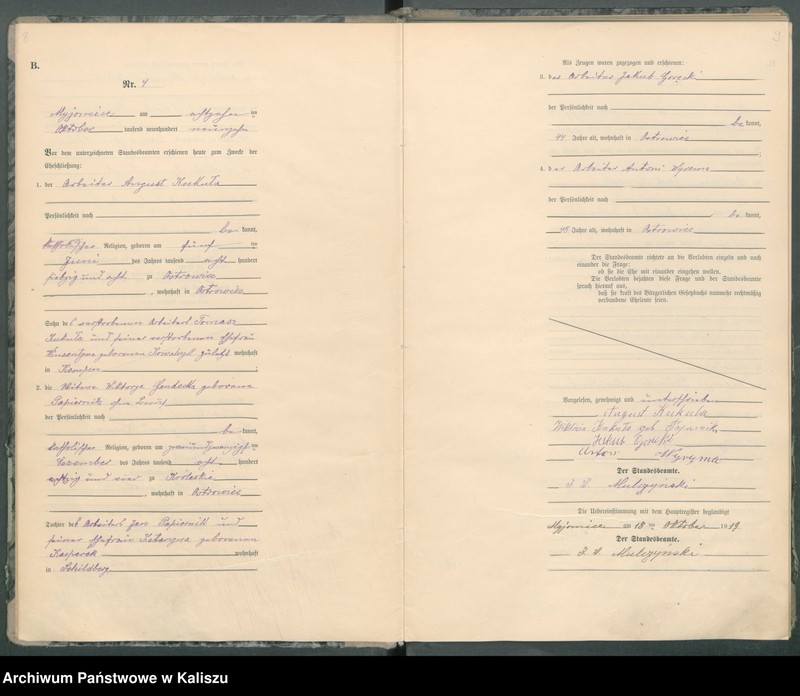 B.
Nr. 4
Myjomice am achtzehn ten
Oktober tausend neunhundert neunzehn
Vor dem unterzeichneten Standesbeamten erschienen heute zum Zwecke der
Eheschließung:
1. der Arbeiter August Kukuła
Persönlichkeit nach
be kannt,
katholischer Religion, geboren am fünf ten
Juni des Jahres tausend acht hundert
siebzig und acht zu Ostrowiec
, wohnhaft in Ostrowiec
Sohn des verstorbenen Arbeiters
Kukuła und seiner verstorbenen Ehefrau
geborenen zuletzt wohnhaft
in Kempen
2. die Witwe Viktorya geborene
Papiernik ohne Beruf
der Persönlichkeit nach
be kannt,
katholischer Religion, geboren am zweiundzwanzigsten
Dezember des Jahres tausend acht hundert
achtzig und vier zu Królewskie
, wohnhaft in Ostrowiec
Tochter des Arbeiters Jan Papiernik und
seiner Ehefrau Katarzyna geborenen
Kasparek wohnhaft
in Schildberg
Als Zeugen waren zugezogen und erschienen:
3. der Arbeiter Jakub Gorecki
der Persönlichkeit nach
be kannt,
44 Jahre alt, wohnhaft in Ostrowiec
;
4. der Arbeiter Antoni Wyrema
der Persönlichkeit nach
be kannt,
48 Jahre alt, wohnhaft in Ostrowiec
Der Standesbeamte richtete an die Verlobten einzeln und nach
einander die Frage:
ob sie die Ehe mit einander eingehen wollen.
Die Verlobten bejahten diese Frage und der Standesbeamte
sprach hierauf aus,
daß sie kraft des Bürgerlichen Gesetzbuchs nunmehr rechtmäßig
verbundene Eheleute seien.
Vorgelesen, genehmigt und unterschrieben
August Kukuła
Wiktoria Kukuła geb Papiernik
Jakub Gorecki
Antoni Wyryma
Der Standesbeamte.
I. V. Mulczyński
Die Uebereinstimmung mit dem Hauptregister beglaubigt
Myjomice am 18 ten Oktober 1919
Der Standesbeamte.
I. V. Mulczyński
Archiwum Państwowe w Kaliszu